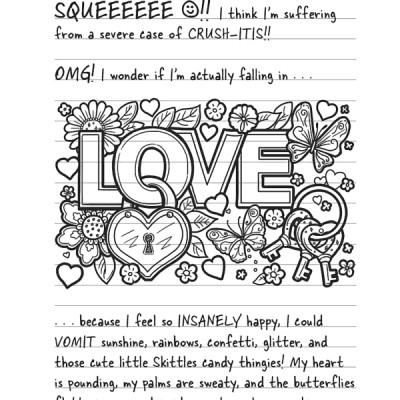 SQUEEEEEE ☺!! I think I'm suffering
from a severe case of CRUSH-ITIS!!
OMG! I wonder if I'm actually falling in . . .
LOVE
. . . because I feel so INSANELY happy, I could
VOMIT sunshine, rainbows, confetti, glitter, and
those cute little Skittles candy thingies! My heart
is pounding, my palms are sweaty, and the butterflies